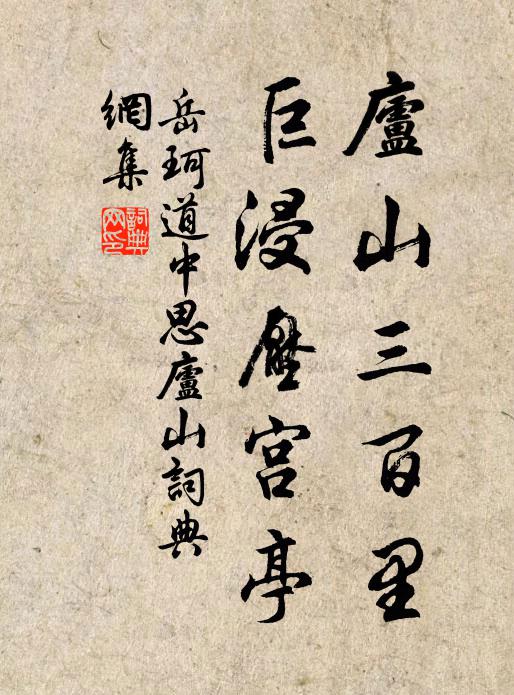 廬山三百里
巨浸壓宫亭
岳珂道中思廬山詞典
網集
詞典
网印